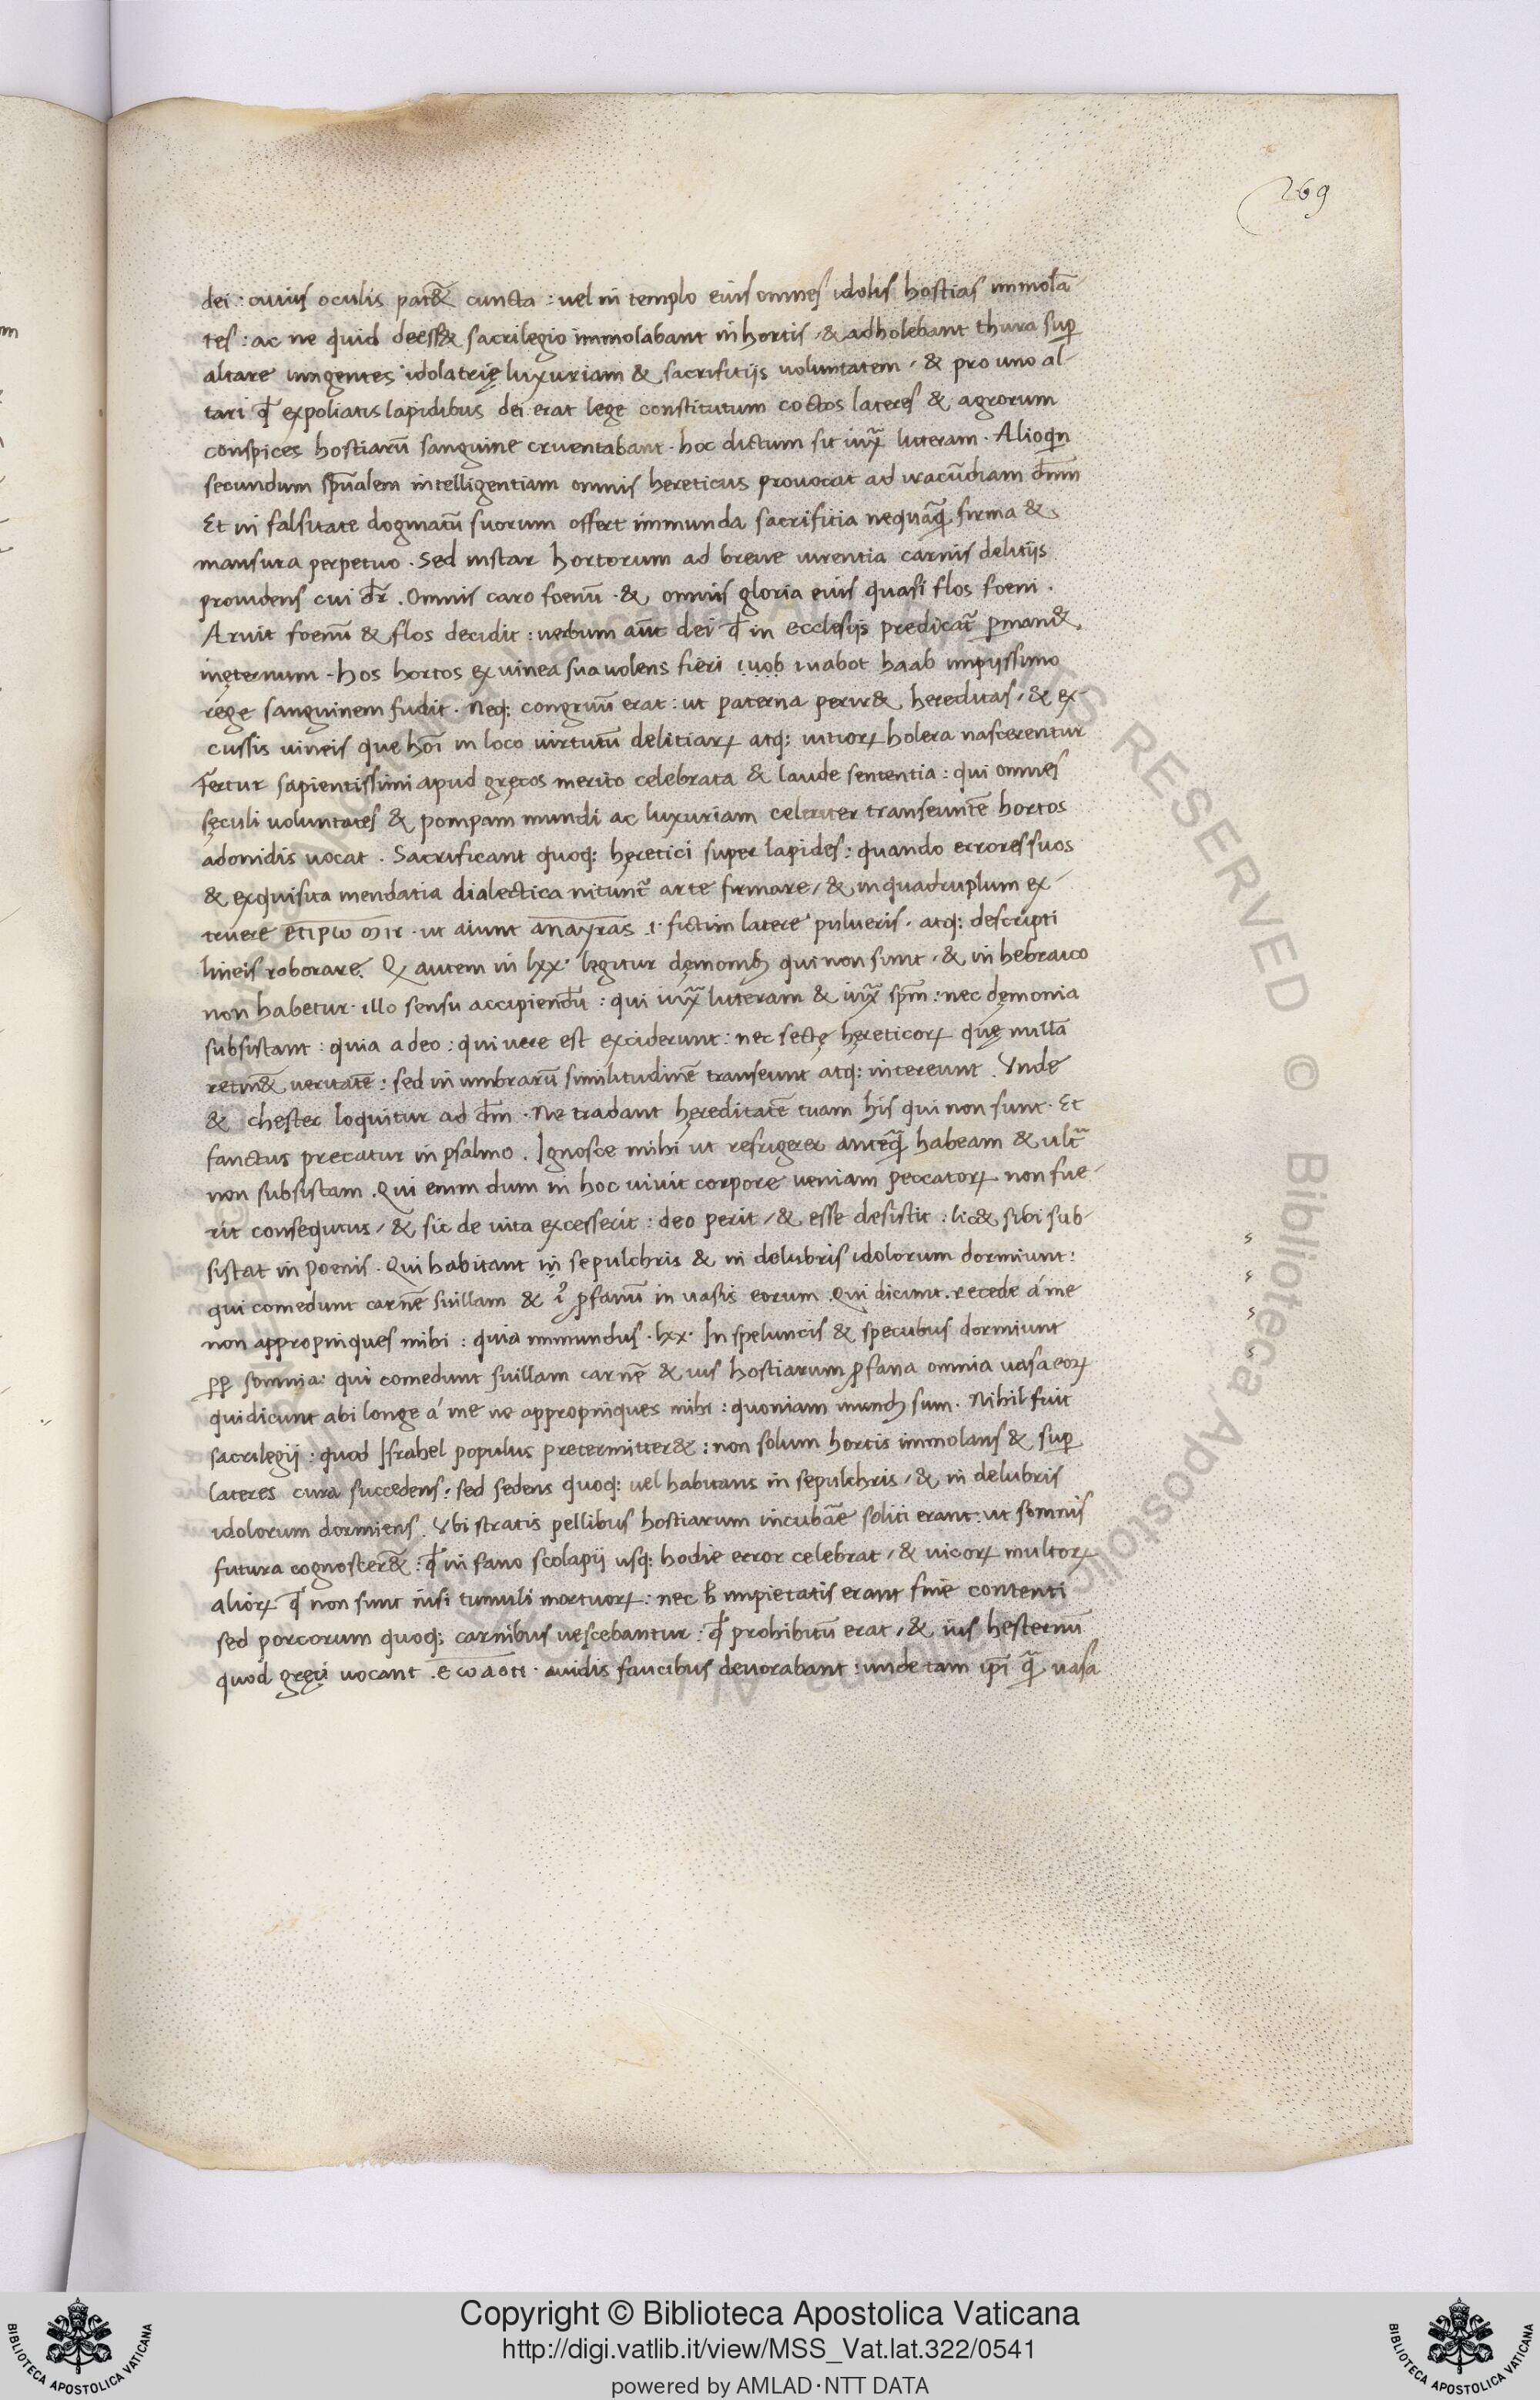 269
dei : cuius oculis pat&̄ cuncta : uel in templo eius omnes idolis hostias immolā
tes : ac ne quid deess& sacrilegio immolabant in hortis , & adholebant thura suꝑ
altare iungentes idolatrię luxuriam & sacrifitijs uoluntatem , & pro uno al-
tari qđ expoliatis lapidibus dei erat lege constitutum coctos lateres & agrorum
conspices hostiarū sanguine cruentabant . hoc dictum sit iuxͣ luteram . Alioqͥn
secundum sp̄ualem intelligentiam omnis hereticus prouocat ad iracūdiam dn̄m
Et in falsitate dogmatū suorum offert immunda sacrifitia nequaꝙ̄ firma &
mansura perpetuo . Sed instar hortorum ad breue uirentia carnis delitijs
prouidens cui dr̄ . Omnis caro foenū . & omnis gloria eius quasi flos foeni .
Aruit foenū & flos decidit : uerbum aūt dei qđ in ecclesijs predicat̄ ꝑman&
inęternum . Hos hortos ex uinea sua uolens fieri iuob nabot haab impijssimo
rege sanguinem fudit . Neq; congruū erat : ut paterna perir& hereditas , & ex-
cussis uineis que hōi in loco uirtutū delitiaꝝ atq; uitioꝝ holera nascerentur
Fertur sapientissimi apud gręcos merito celebrata & laude sententia : qui omnes
sęculi uoluntates & pompam mundi ac luxuriam celeriter transeuntē hortos
adonidis uocat . Sacrificant quoq; hęretici super lapides : quando errores suos
& exquisita mendatia dialectica nitunt̄ arte firmare , & in quadruplum ex-
truere . ut aiunt .i. fictim latere pulueris . atq; descripti
lineis roborare . Q autem in lxx . legitur dęmonib; qui non sunt , & in hebraico
non habetur . illo sensu accipiendū : qui iuxͣ luteram & iuxͣ sp̄m : nec dęmonia
subsistant : quia a deo : qui uere est exciderunt : nec sectę hęreticoꝝ quę nulla
retin&̄ ueritatē : sed in umbrarū similitudinē transeunt atq; intereunt . Vnde
& chester loquitur ad dn̄m . Ne tradant hęreditatē tuam his qui non sunt . Et
sanctus precatur in psalmo . Ignosce mihi ut refrigerer anteꝙ̄ habeam & ultͣ
non subsistam . Qui enim dum in hoc uiuit corpore ueniam peccatoꝝ non fue-
rit consequtus , & sic de uita excesserit : deo perit , & esse desistit : lic& sibi sub-
sistat in poenis . Qui habitant in sepulchris & in delubris idolorum dormiunt :
qui comedunt carnē suillam & ꝓfanū in uasis eorum . Qui dicunt . recede á me
non appropinques mihi : quia immundus . lxx . In speluncis & specubus dormiunt
ꝓꝑ somnia : qui comedunt suillam carnē & ius hostiarum ꝓfana omnia uasa eoꝝ
qui dicunt abi longe á me ne appropinques mihi : quoniam mundꝰ sum . Nihil fuit
sacrilegij : quod Israhel populus pretermitter& : non solum hortis immolans & suꝑ
lateres cura succedens : sed sedens quoq; uel habitans in sepulchris , & in delubris
idolorum dormiens . Vbi stratis pellibus hostiarum incubāe soliti erant : ut somnis
futura cognoscer&̄ : qđ in fano scolapij usq; hodie error celebrat , & uicoꝝ multoꝝ
alioꝝ qđ non sunt nisi tumuli mortuoꝝ : nec h̄ impietatis erant fine contenti
sed porcorum quoq; carnibus uescebantur : qđ prohibitū erat , & ius hesternū
quod gręci uocant . εωλοη . auidis faucibus deuorabant : unde tam ip̄i ꝙ̄ uasa
Copyright © Biblioteca Apostolica Vaticana
http://digi.vatlib.it/view/MSS_Vat.lat.322/0541
powered by AMLAD·NTT DATA